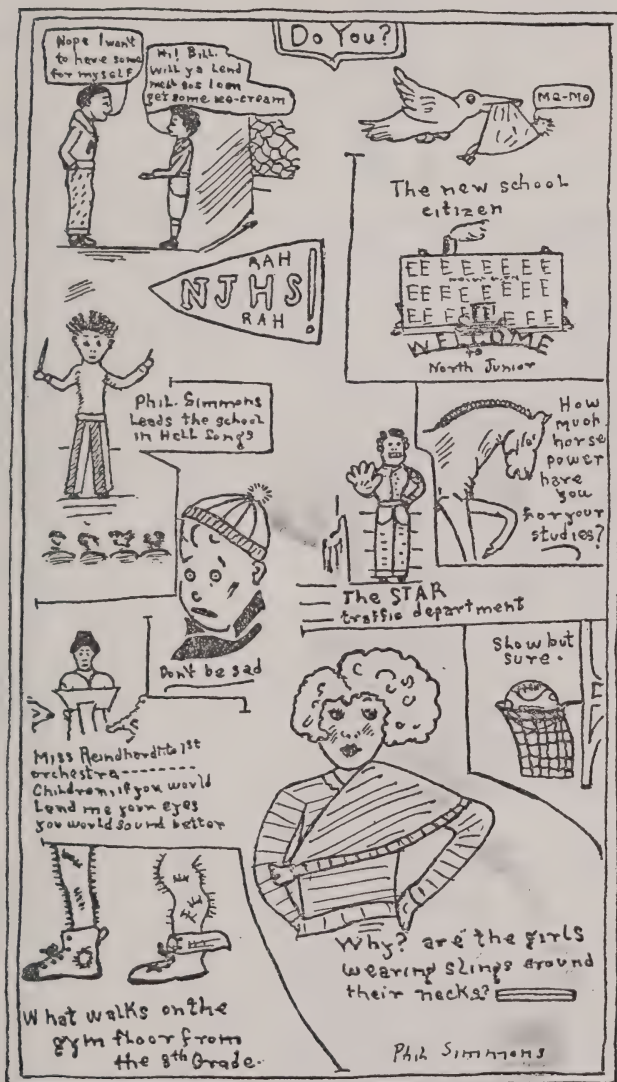 Do You?
Nope I want
to have some
for myself
Hi! Bill.
Will ya Lend
me 50s I can
get some ice-cream
Ma-Mo
The new school
citizen
WELCOME
to
North Junior
RAH
NJHS!
RAH
Phil. Simmons
Leads the school
in Hell Songs
How
much
horse
power
have
you
for your
studies?
The STAR
traffic department
Don't be sad
Show but
sure.
Miss Reindhardt to 1st
orchestra---------
Children, if you would
Lend me your eyes
you would sound better
Why? are the girls
wearing slings around
their necks?
What walks on the
gym floor from
the 8th Grade.
Phil Simmons